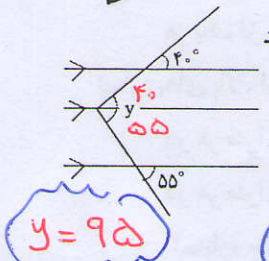 ۴۰°
۴۰
y
۵۵
۵۵°
y = ۹۵